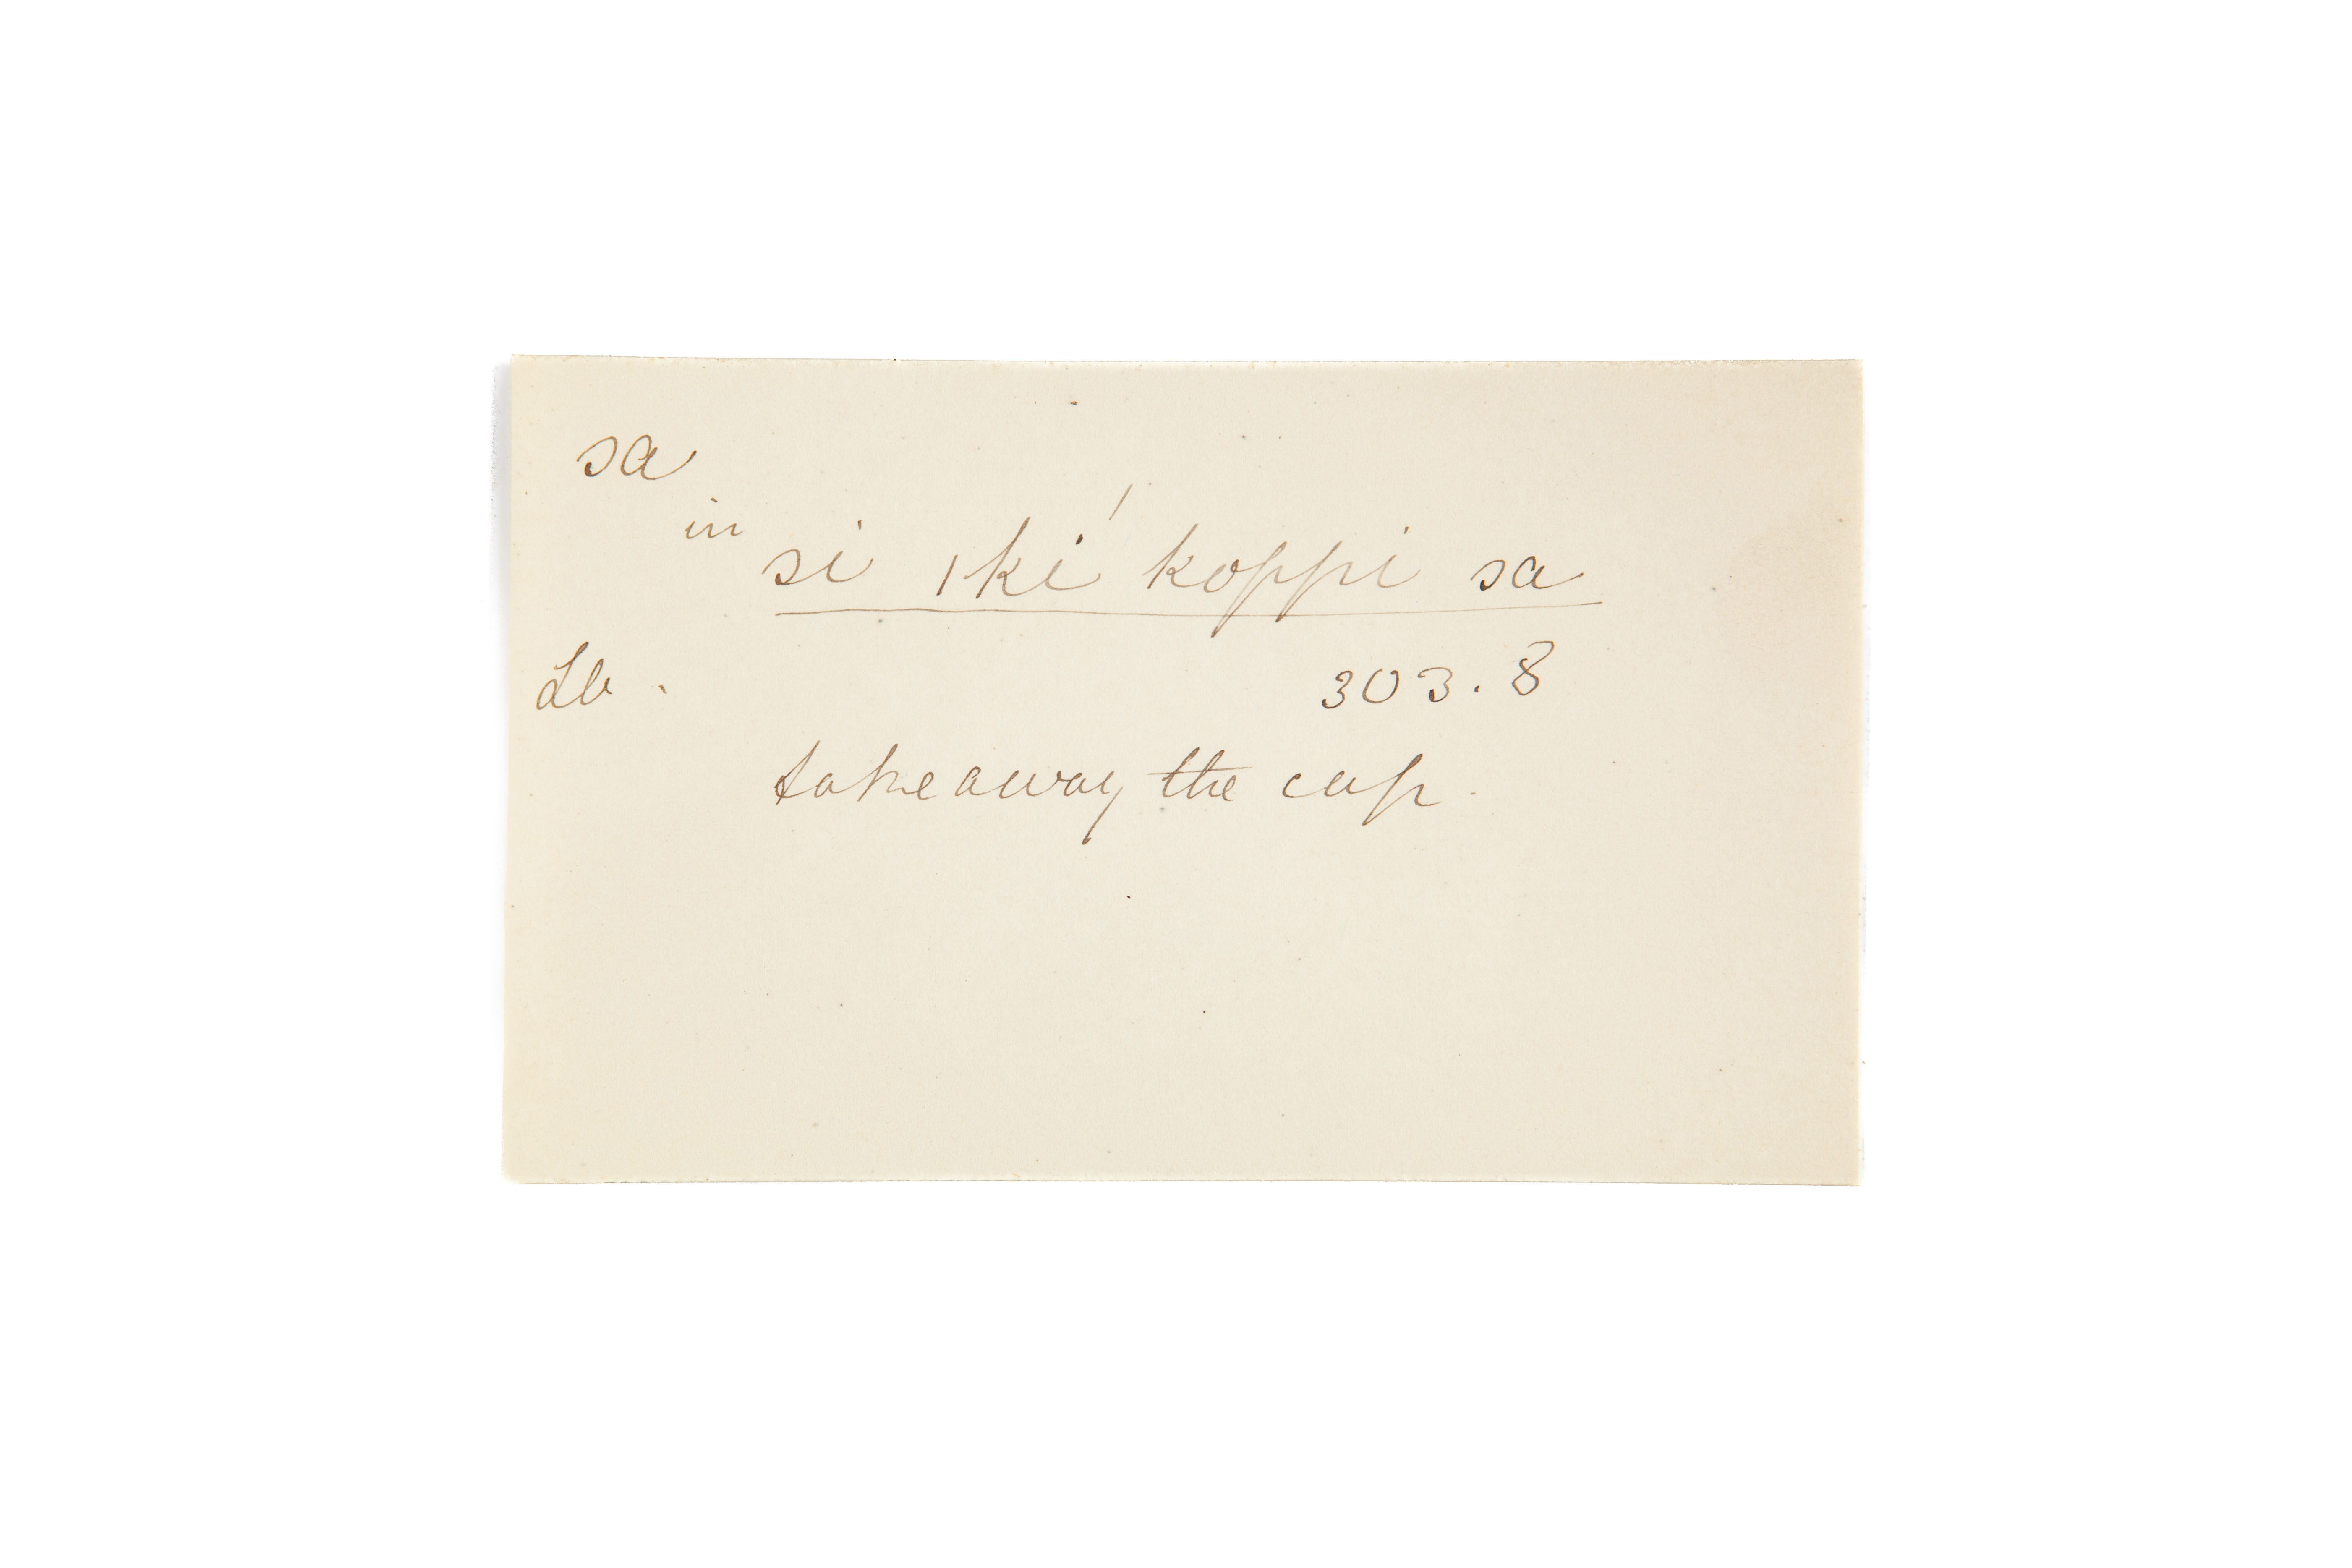 sa
in si ǀkí koppi sa
Lb. 303.8
take away the cup.